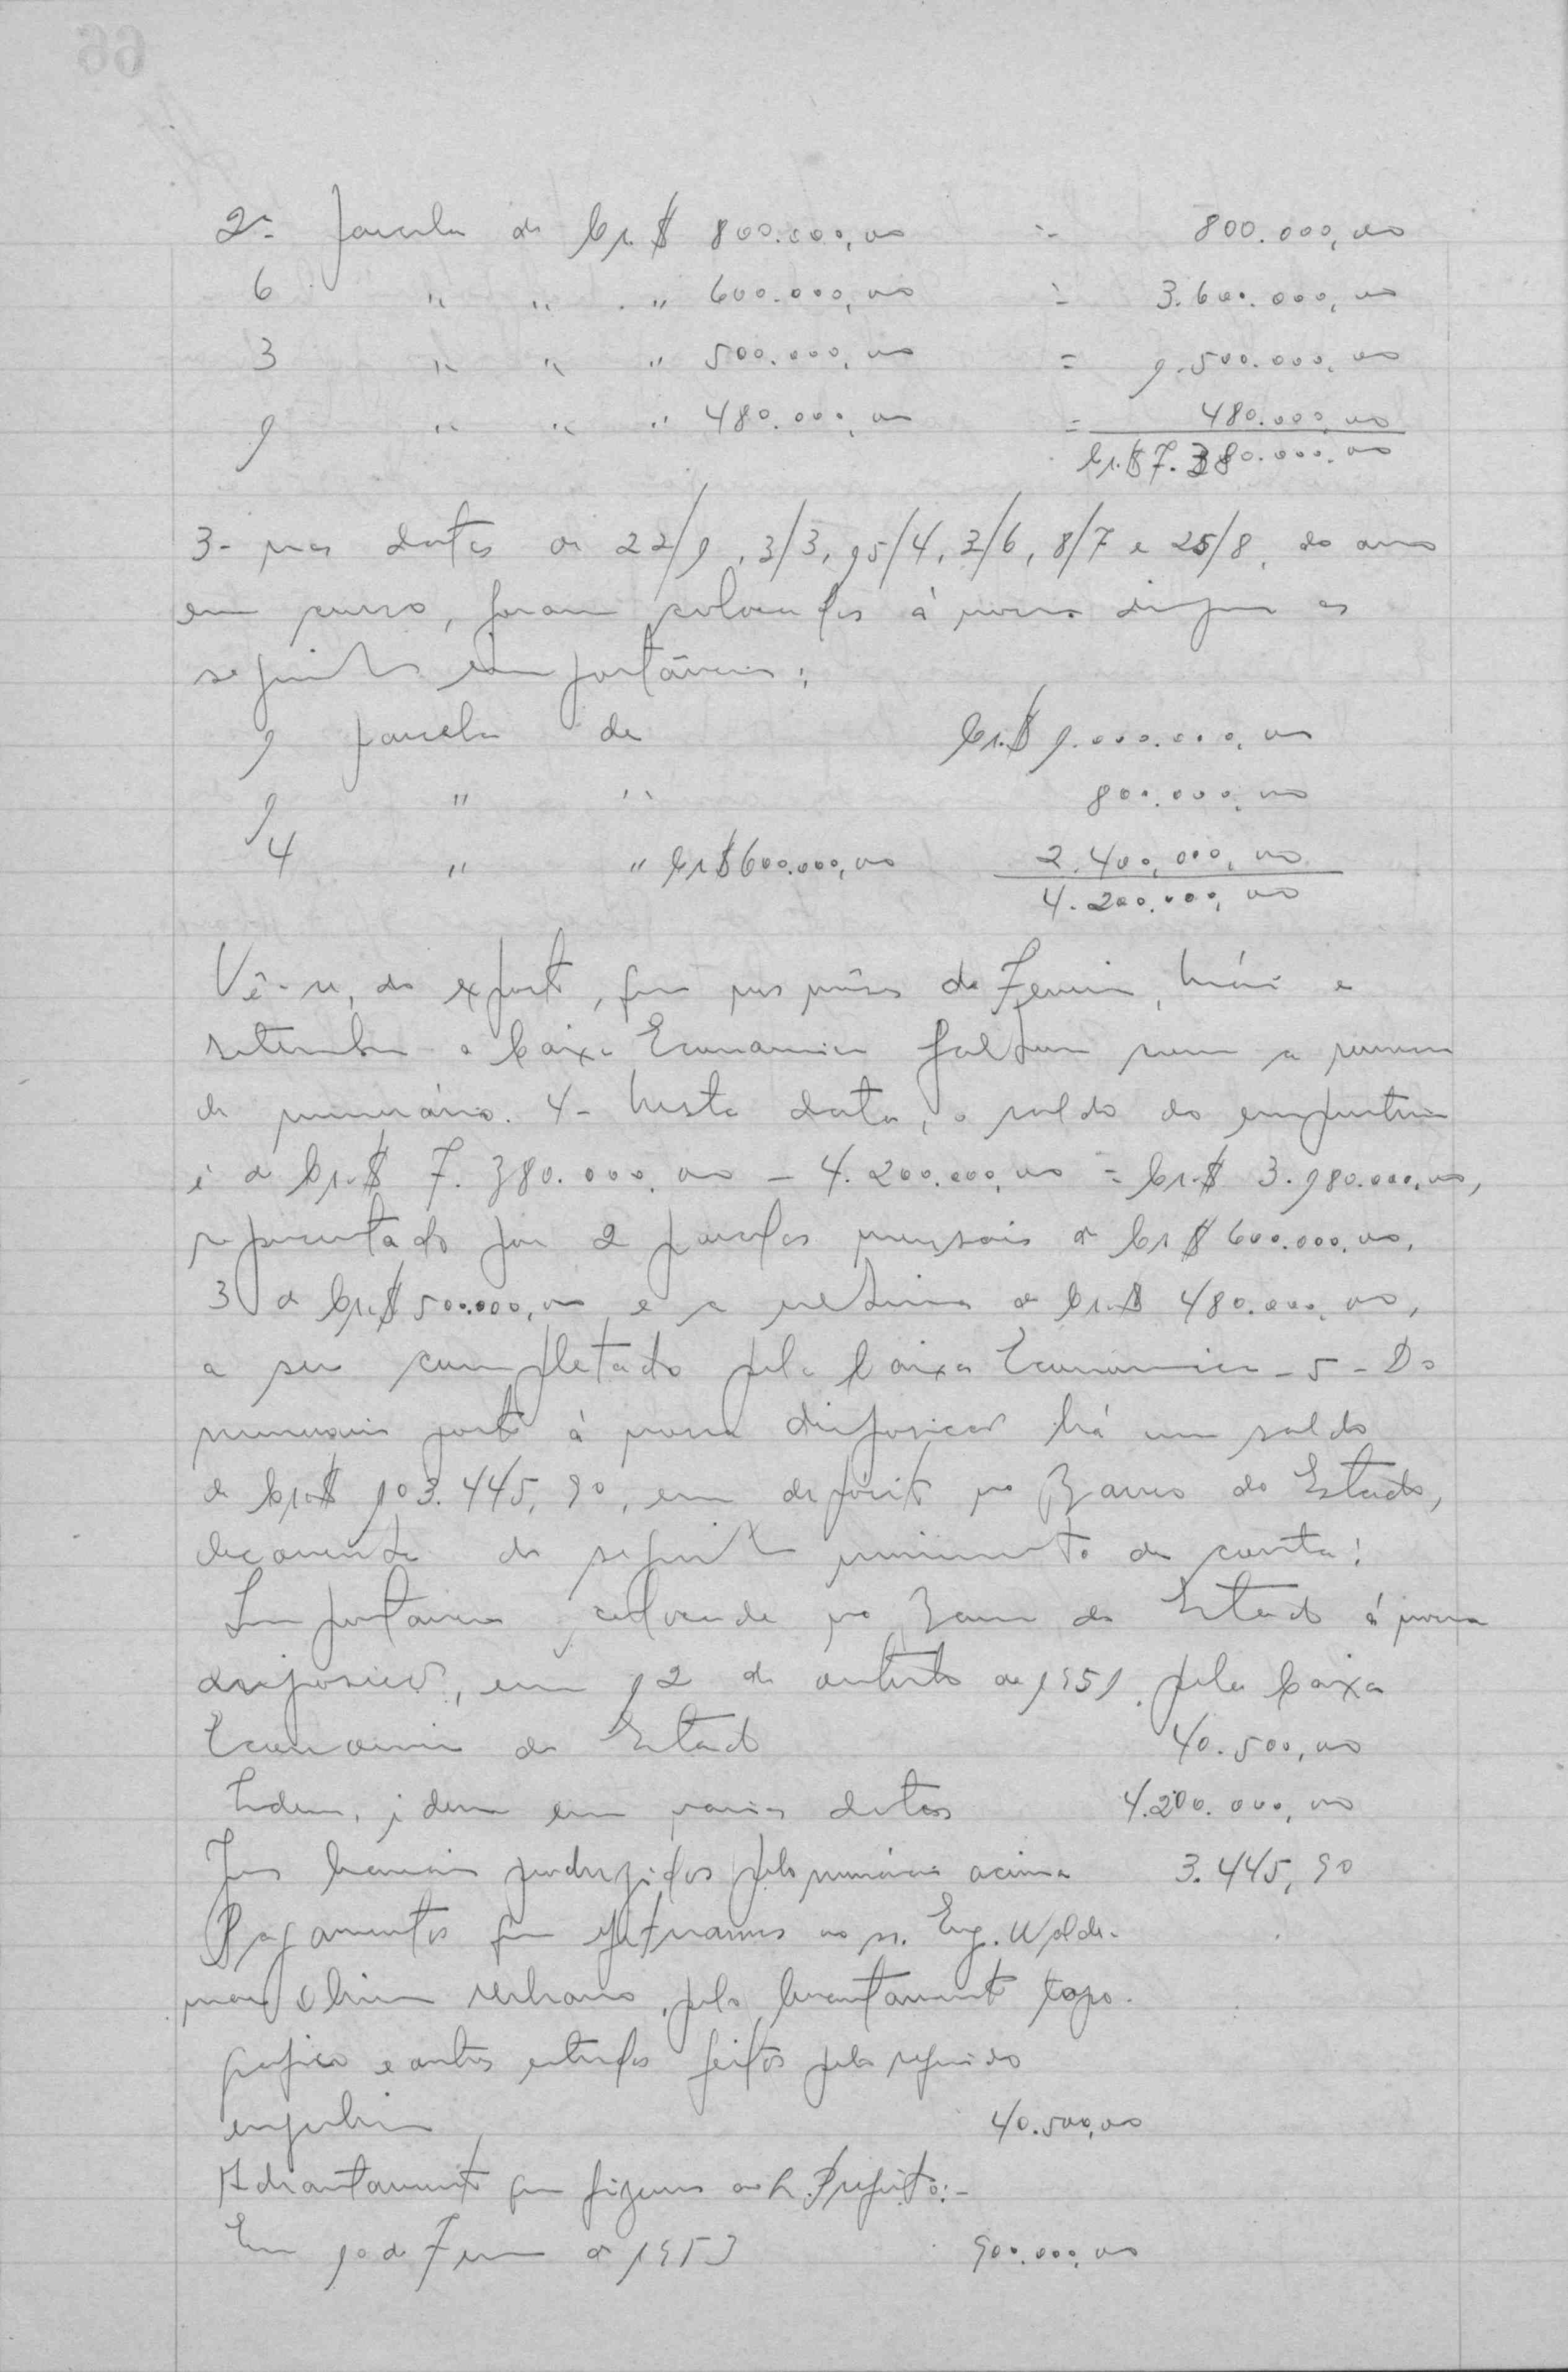 2ª parcela de Cr.$ 800.000,00 = 800.000,00
6 " " " 600.000,00 = 3.600.000,00
3 " " " 500.000,00 = 1.500.000,00
1 " " " 480.000,00 = 480.000,00
Cr.$ 7.380.000,00
3- nas datas de 22/1, 3/3, 15/4, 3/6, 8/7 e 25/8, do ano
em curso, foram colocadas à nossa as
seguintes importâncias:
1 parcela de Cr.$ 1.000.000,00
1 " " 800.000,00
4 " " Cr$ 600.000,00 2.400.000,00
4.200.000,00
Vê-se, do exposto, que nos mêses de Fevereiro, Maio e
setembro a Caixa Economica faltou com a remessa
de numerário. 4- Nesta data, o saldo do emprestimo
é de Cr.$ 7.380.000,00 - 4.200.000,00 = Cr.$ 3.180.000,00,
representado por 2 parcelas mensais de Cr$ 600.000,00,
3 de Cr.$ 500.000,00 e a ultima de Cr.$ 480.000,00,
a ser completado pela Caixa Economica - 5 - Do
numerario posto à nossa disposição há um saldo
de Cr.$ 103.445,90, em deposito no Banco do Estado,
decorrente do seguinte movimento da conta:
Importancia colocada no Banco do Estado à nossa
disposição, em 12 de outubro de 1951, pela Caixa
Economica do Estado 40.500,00
Idem, idem em varias datas 4.200.000,00
Juros bancarios produzidos pelo numerário acima 3.445,90
Pagamentos que efetuamos ao sr. Eng. Walde-
mar , pelo levantamento topo-
grafico e outros estudos feitos pelo referido
engenheiro 40.500,00
Adiantamento que fizemos ao Prefeito:-
Em 10 de Fevereiro de 1953 900.000,00